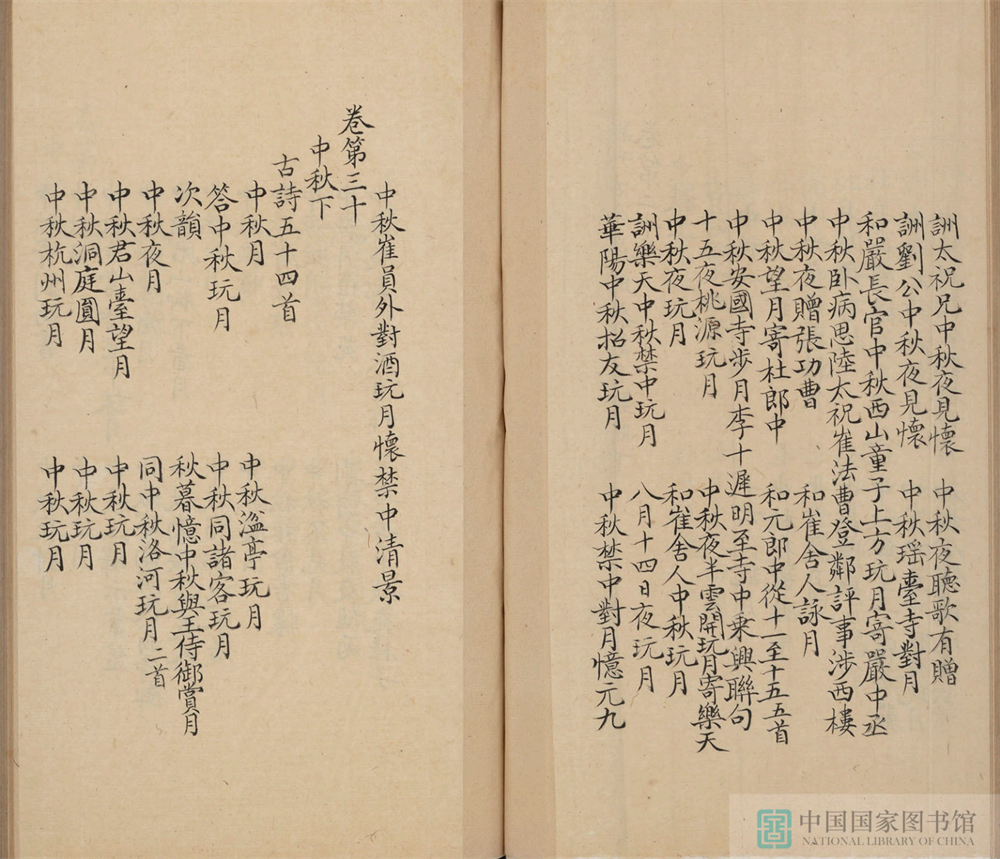 詶太祝兄中秋夜見懷 中秋夜聽歌有贈
詶劉公中秋夜見懷 中秋瑶臺寺對月
和嚴長官中秋西山童子上方玩月寄嚴中丞
中秋卧病思陸太祝崔法曹登鄰評事涉西樓
中秋夜贈張功曹 和崔舍人詠月
中秋望月寄杜郎中 和元郎中從十一至十五五首
中秋安國寺步月李十遲明至寺中乗興聯句
十五夜桃源玩月 中秋夜半雲開玩月寄樂天
中秋夜玩月 和崔舍人中秋玩月
詶樂天中秋禁中玩月 八月十四日夜玩月
華陽中秋招友玩月 中秋禁中對月憶元九
中秋崔員外對酒玩月懷禁中清景
卷第三十
中秋下
古詩五十四首
中秋月 中秋湓亭玩月
答中秋玩月 中秋同諸客玩月
次韻 秋暮憶中秋與王侍御賞月
中秋夜月 同中秋洛河玩月二首
中秋君山臺望月 中秋玩月
中秋洞庭圓月 中秋玩月
中秋杭州玩月 中秋玩月
中国国家图书馆
NATIONAL LIBRARY OF CHINA